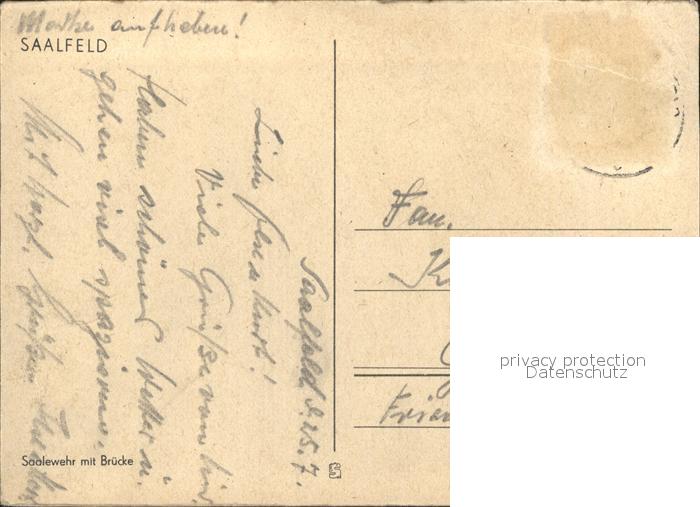 Marke aufheben!
SAALFELD
Saalfeld, d. 25.7.
Liebe u. Kurt!
Viele Grüße von hier
Haben schönes Wetter u.
gehen viel spazieren.
Mit herzl. Grüßen
Fam.
K
Saalewehr mit Brücke
privacy protection
Datenschutz